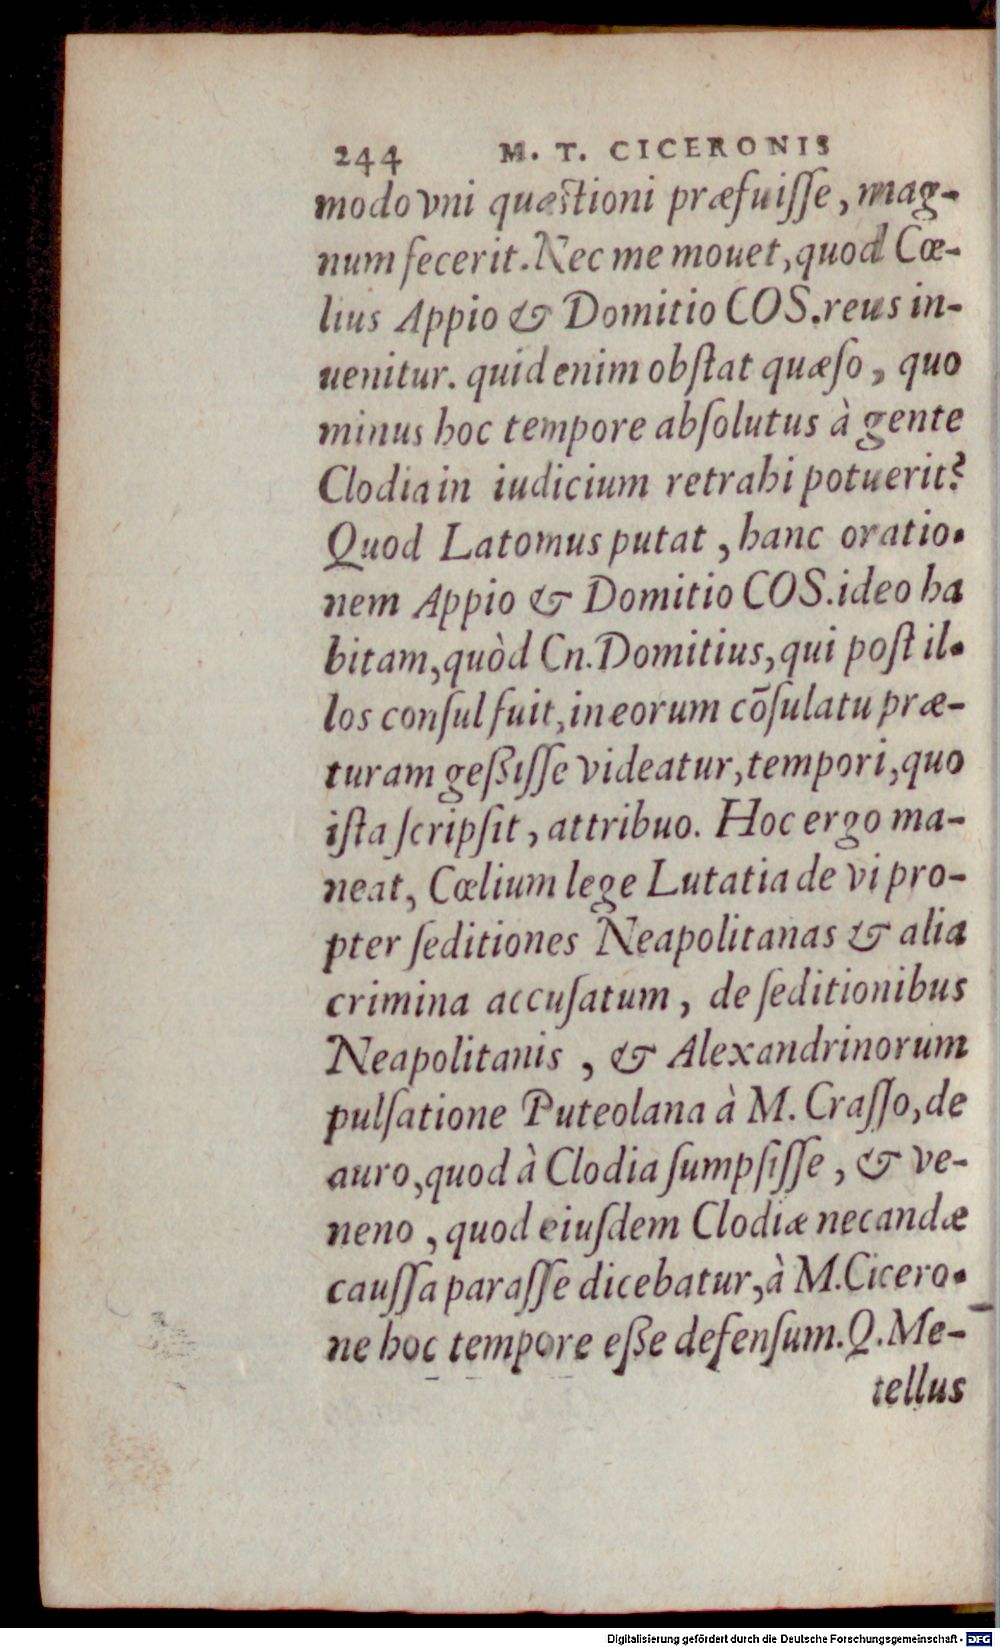 244 M. T. CICERONIS
modo vni quæstioni præfuiſſe, mag-
num fecerit. Nec me mouet, quod Cœ-
lius Appio & Domitio COS. reus in-
uenitur. quid enim obſtat quæſo, quo
minus hoc tempore abſolutus à gente
Clodia in iudicium retrahi potuerit?
Quod Latomus putat, hanc oratio-
nem Appio & Domitio COS. ideo ha
bitam, quòd Cn. Domitius, qui poſt il-
los conſul fuit, in eorum cõſulatu præ-
turam geßiſſe videatur, tempori, quo
iſta ſcripſit, attribuo. Hoc ergo ma-
neat, Cœlium lege Lutatia de vi pro-
pter ſeditiones Neapolitanas & alia
crimina accuſatum, de ſeditionibus
Neapolitanis, & Alexandrinorum
pulſatione Puteolana à M. Craſſo, de
auro, quod à Clodia ſumpſiſſe, & ve-
neno, quod eiuſdem Clodiæ necandæ
cauſſa paraſſe dicebatur, à M. Cicero-
ne hoc tempore eße defenſum. Q. Me-
tellus
Digitalisierung gefördert durch die Deutsche Forschungsgemeinschaft - DFG